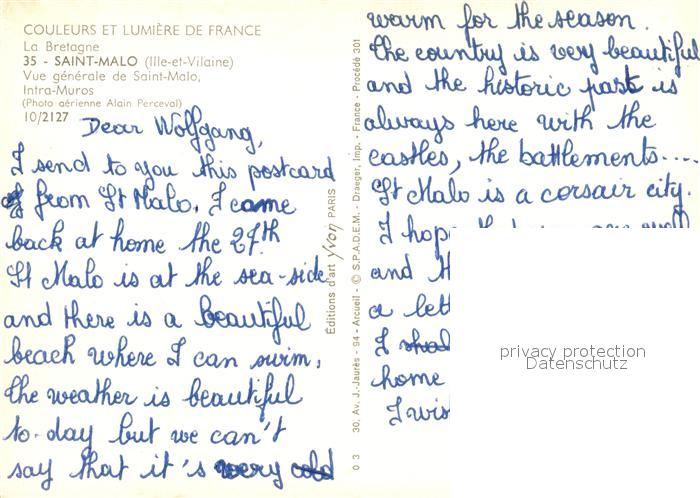 COULEURS ET LUMIÈRE DE FRANCE
La Bretagne
35 - SAINT-MALO (Ille-et-Vilaine)
Vue générale de Saint-Malo,
Intra-Muros
(Photo aérienne Alain Perceval)
10/2127
Dear Wolfgang,
I send to you this postcard
from St Malo. I came
back at home the 27th
St Malo is at the sea-side
and there is a beautiful
beach where I can swim,
the weather is beautiful
to-day but we can't
say that it's very cold
Éditions d'art Yvon PARIS
30, Av. J.-Jaurès - 94 - Arcueil - © S.P.A.D.E.M. - Draeger, Imp. - France - Procédé 301
0 3
warm for the season.
the country is very beautiful
and the historic past is
always here with the
castles, the battlements....
St Malo is a corsair city.
I hope
and
a
I
home
I
privacy protection
Datenschutz